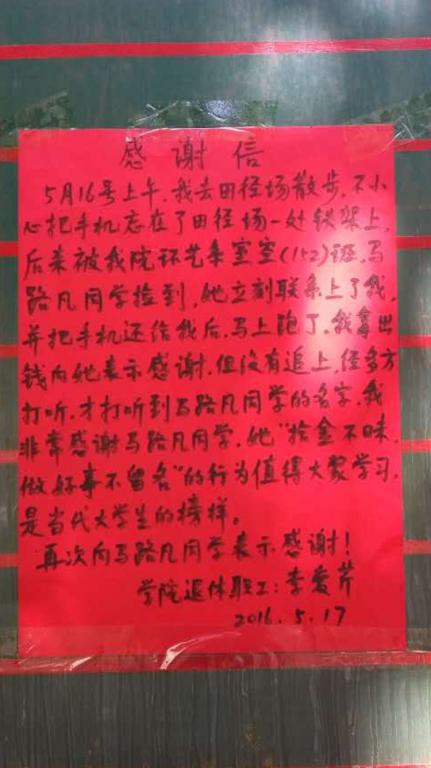 感谢信
5月16号上午,我去田径场散步,不小
心把手机忘在了田径场一处铁架上,
后来被我院环艺系室空(152)班,马
路凡同学捡到,她立刻联系上了我,
并把手机还给我后,马上跑了,我拿出
钱向她表示感谢,但没有追上,经多方
打听,才打听到马路凡同学的名字,我
非常感谢马路凡同学,她"拾金不昧,
做好事不留名"的行为值得大家学习,
是当代大学生的榜样。
再次向马路凡同学表示感谢!
学院退休职工:李爱芹
2016.5.17